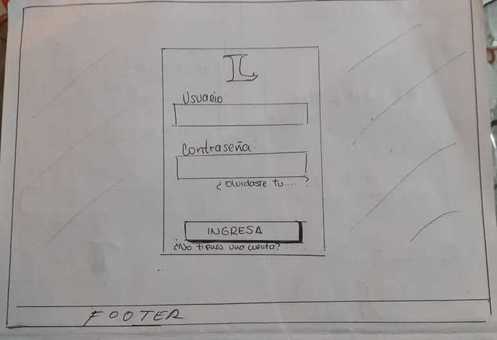 IL
Usuario
Contraseña
¿Olvidaste tu....?
INGRESA
¿No tienes una cuenta?
FOOTER